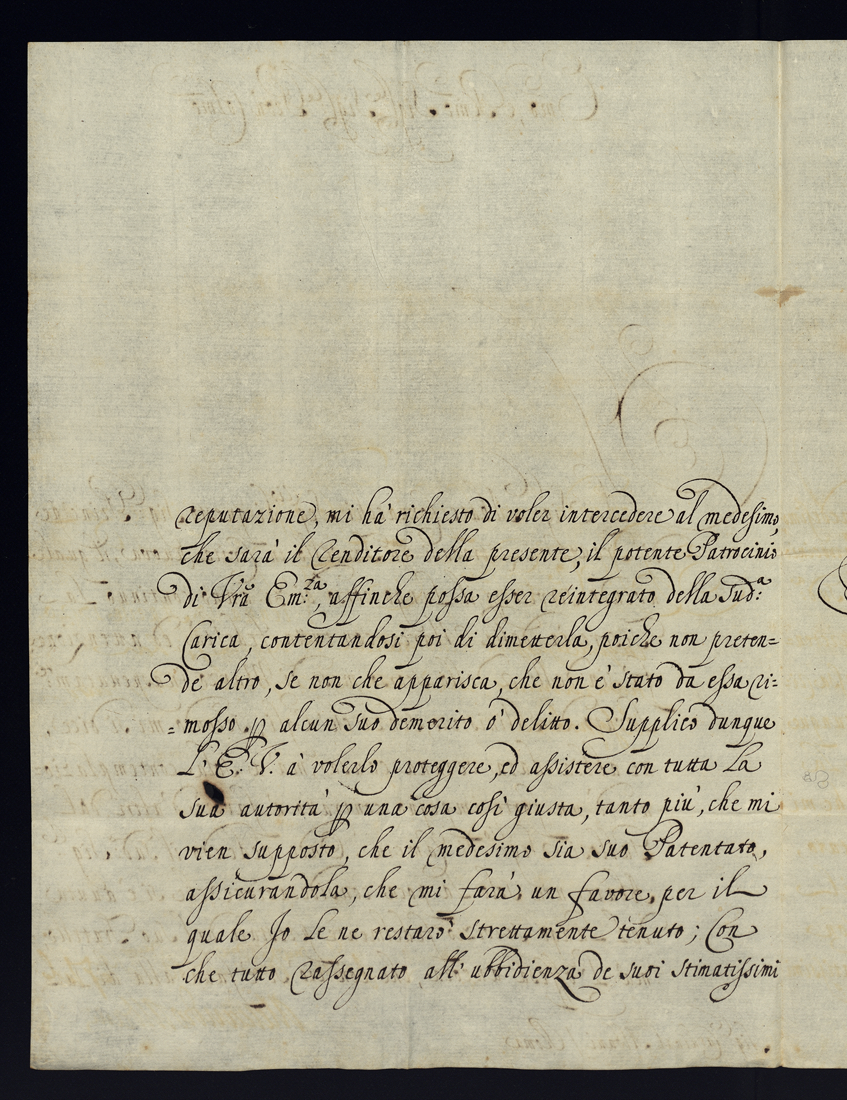 reputazione, mi hà richiesto di voler intercedere al medesimo,
che sarà il Renditore della presente, il potente Patrocinio
di Vrã Em:za, affinche possa esser reintegrato della Sud:a
Carica, contentandosi poi di dimetterla, poiche non preten=
de altro, se non che apparisca, che non e' stato da essa ri=
=mosso ꝑ alcun suo demerito ò delitto. Supplico dunque
L'E. V. à volerlo proteggere, ed assistere con tutta la
sua autorità ꝑ una cosa così giusta, tanto più, che mi
vien supposto, che il medesimo sia suo Patentato,
assicurandola, che mi farà un favore, per il
quale Io le ne restarò strettamente tenuto; Con
che tutto rassegnato all' ubbidienza de suoi stimatissimi